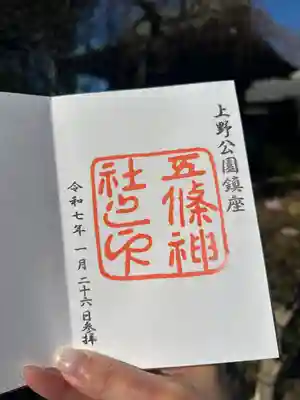 上野公園鎮座
五條神
社之印
令和七年一月二十六日参拝